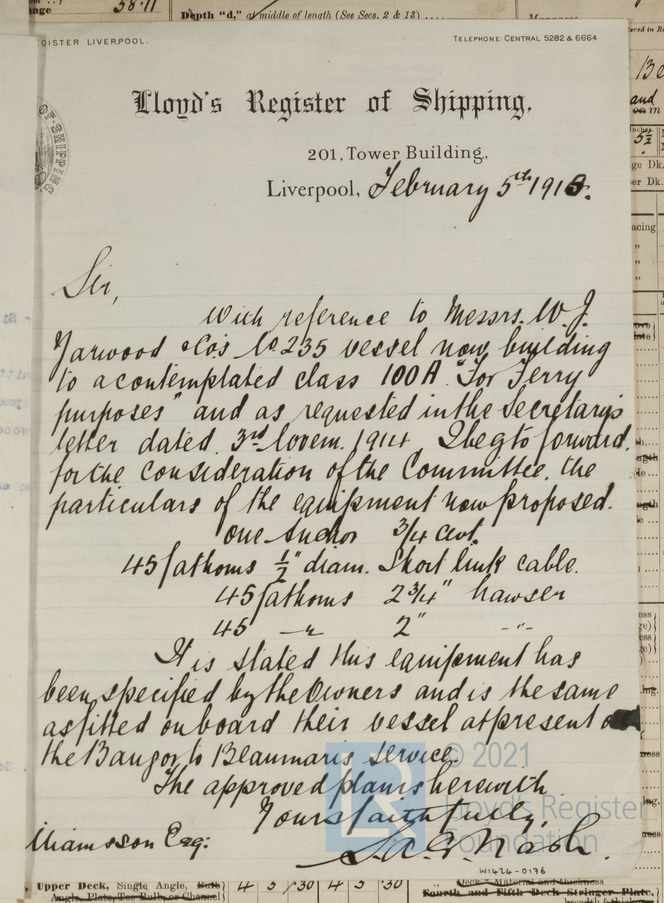 nge
58.11
Depth "d," at middle of length (See Secs. 2 & 13) ....
GISTER LIVERPOOL.
TELEPHONE: CENTRAL 5282 & 6664
Lloyd's Register of Shipping,
OF SHIPPING
201, Tower Building,
Liverpool, February 5th 1915.
Sir,
With reference to Messrs. W. J.
Yarwood & Co's No 235 vessel now building
to a contemplated class 100A "For Ferry
purposes" and as requested in the Secretary's
letter dated 3rd Novem. 1914 I beg to forward
for the consideration of the Committee, the
particulars of the equipment now proposed.
One Anchor 3/4 Cwt.
45 fathoms 1/2" diam. Short link cable.
45 fathoms 2 3/4" hawser
45 — " — 2" — " —
It is stated this equipment has
been specified by the Owners and is the same
as fitted onboard their vessel at present on
the Bangor to Beaumaris service.
The approved plan is herewith.
Yours faithfully,
lliamsson Esq:
Nash.
LR © 2021
Lloyd's Register
Foundation
W1426-0176
Upper Deck, Single Angle, Bulb
Angle, Plate, Tee Bulb, or Channel
4 5 .30 4 5 .30
Deck - Material and thickness
Fourth and Fifth Deck Stringer Plate,